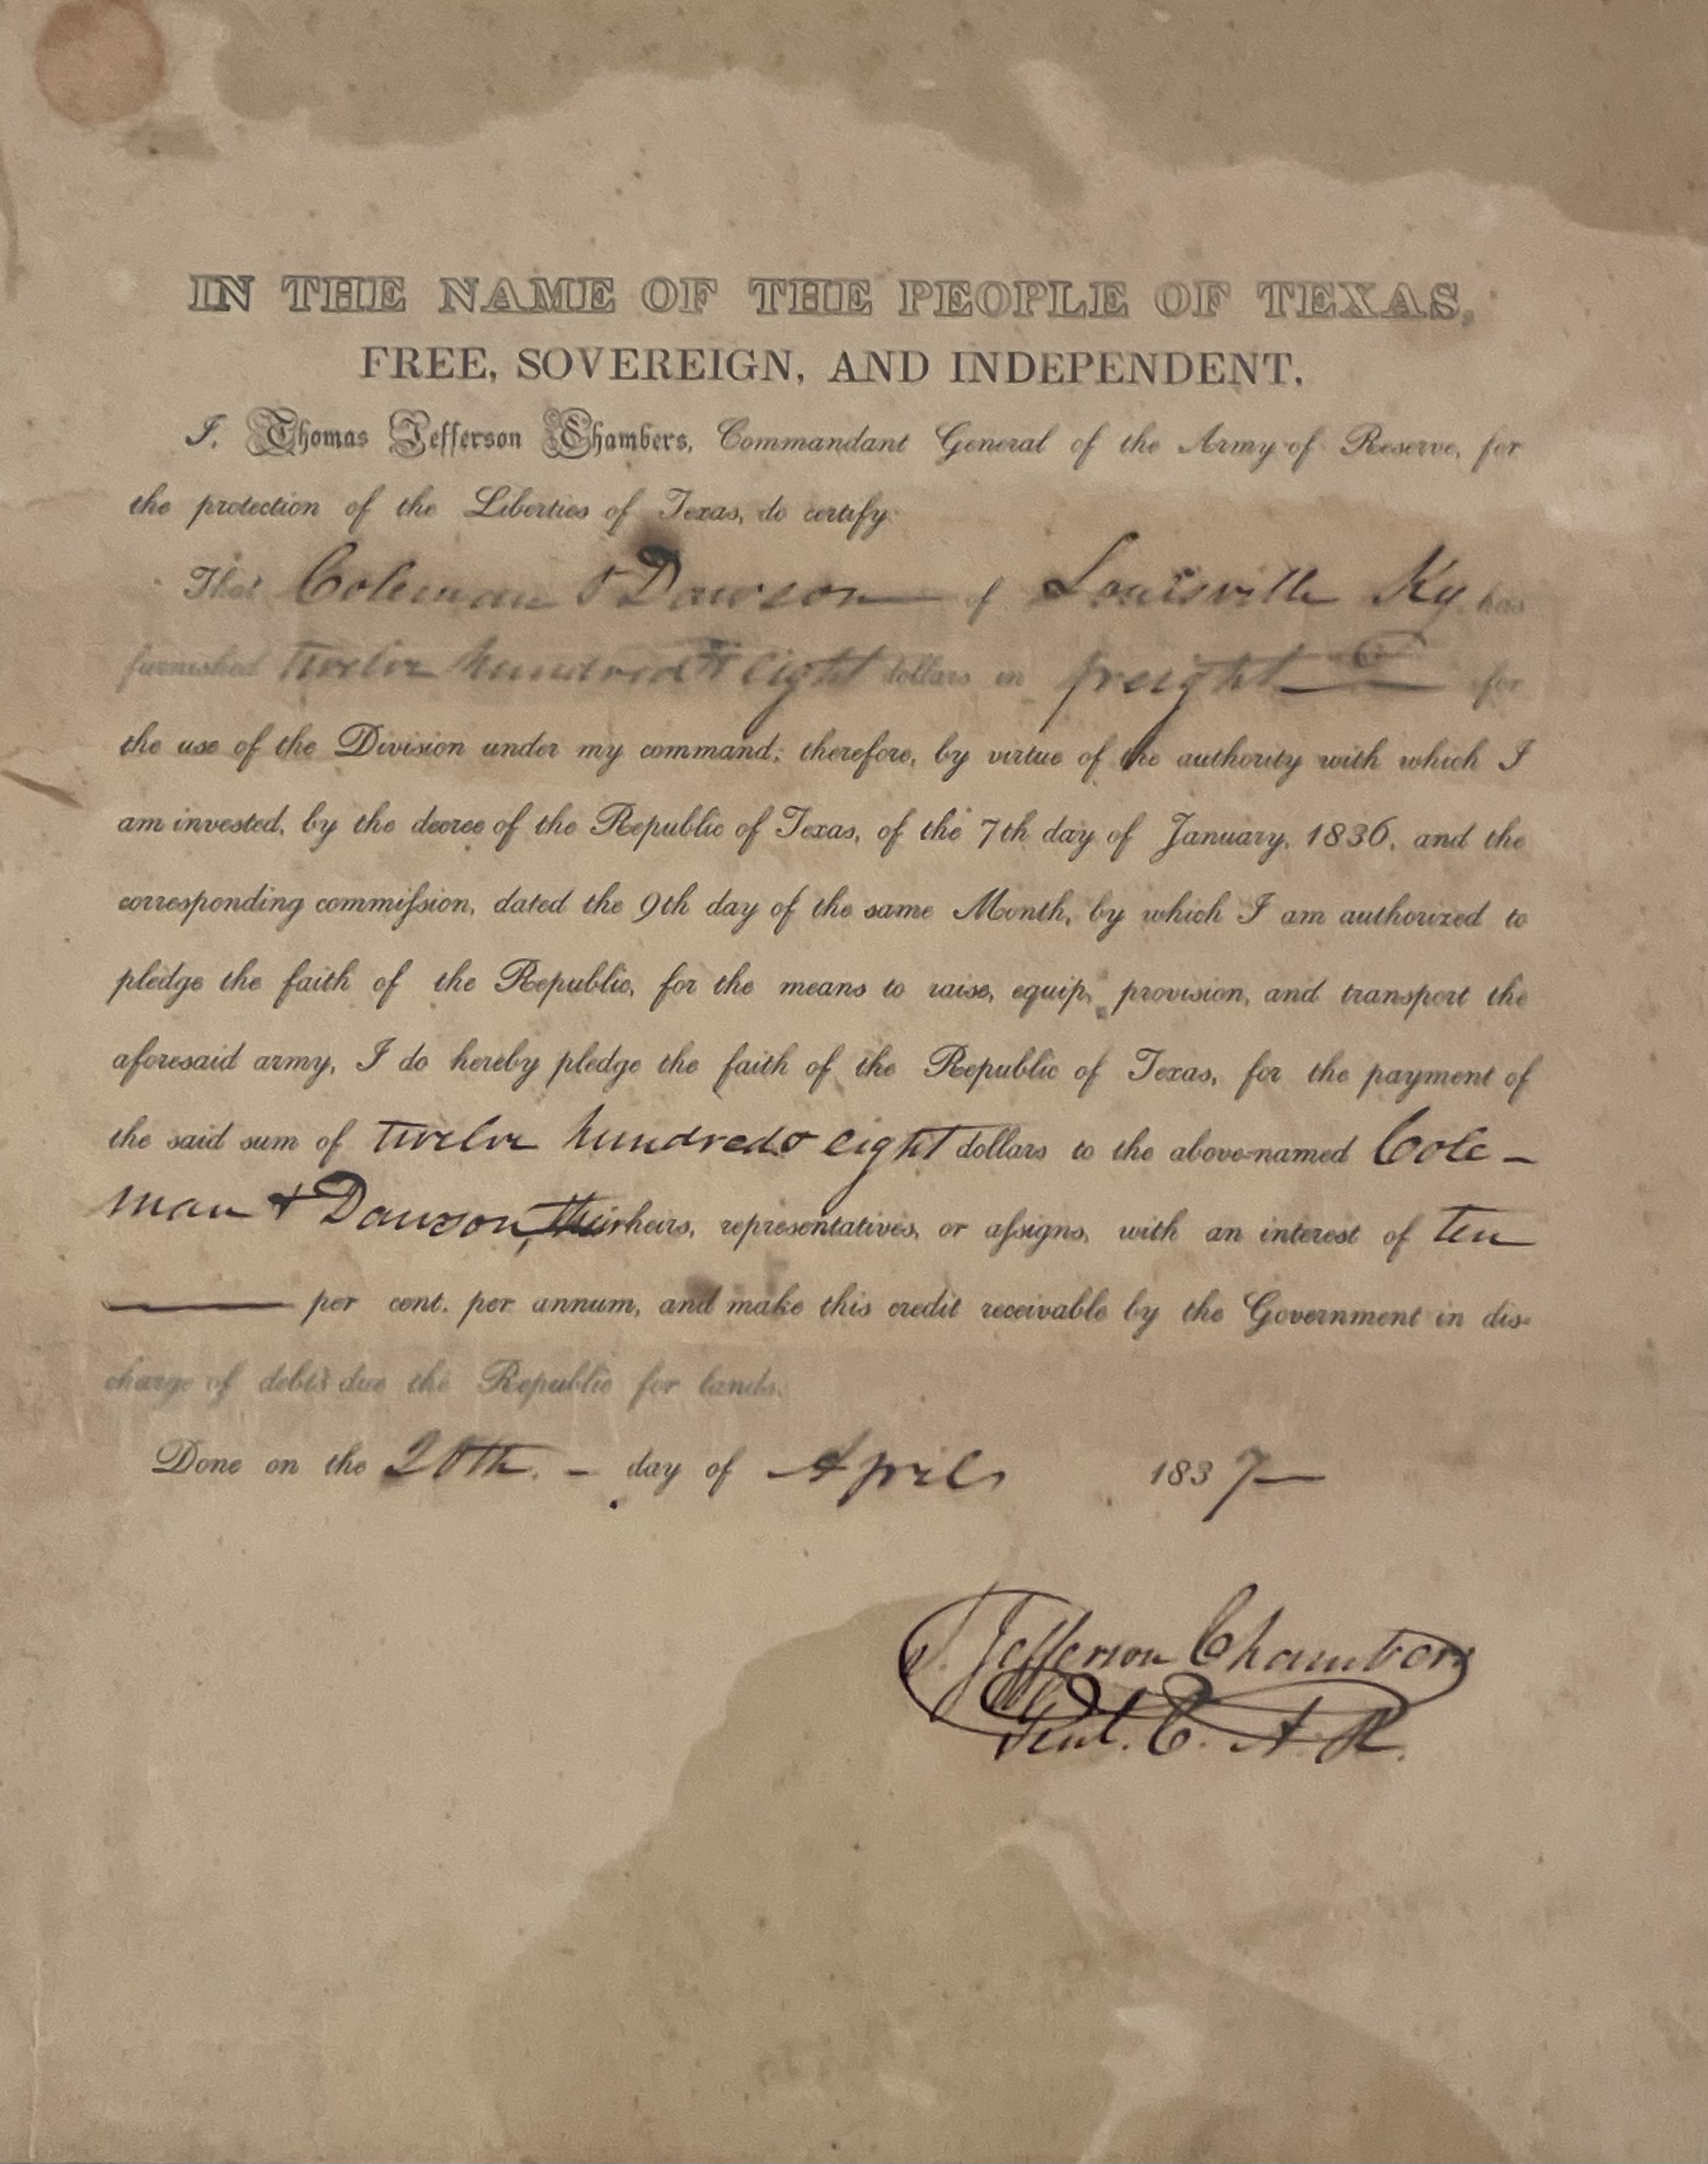 IN THE NAME OF THE PEOPLE OF TEXAS,
FREE, SOVEREIGN, AND INDEPENDENT.
I, Thomas Jefferson Chambers, Commandant General of the Army of Reserve, for
the protection of the Liberties of Texas, do certify.
That Coleman & Dawson of Louisville Ky has
furnished twelve hundred & eight dollars in freight for
the use of the Division under my command; therefore, by virtue of the authority with which I
am invested, by the decree of the Republic of Texas, of the 7th day of January, 1836, and the
corresponding commiſsion, dated the 9th day of the same Month, by which I am authorized to
pledge the faith of the Republic, for the means to raise, equip, provision, and transport the
aforesaid army, I do hereby pledge the faith of the Republic of Texas, for the payment of
the said sum of twelve hundred & eight dollars to the above-named Cole-
man & Dawson, their heirs, representatives, or aſsigns, with an interest of ten
per cent. per annum, and make this credit receivable by the Government in dis-
charge of debts due the Republic for lands.
Done on the 20th. - day of April 1837
T. Jefferson Chambers
Genl. C. A. R.